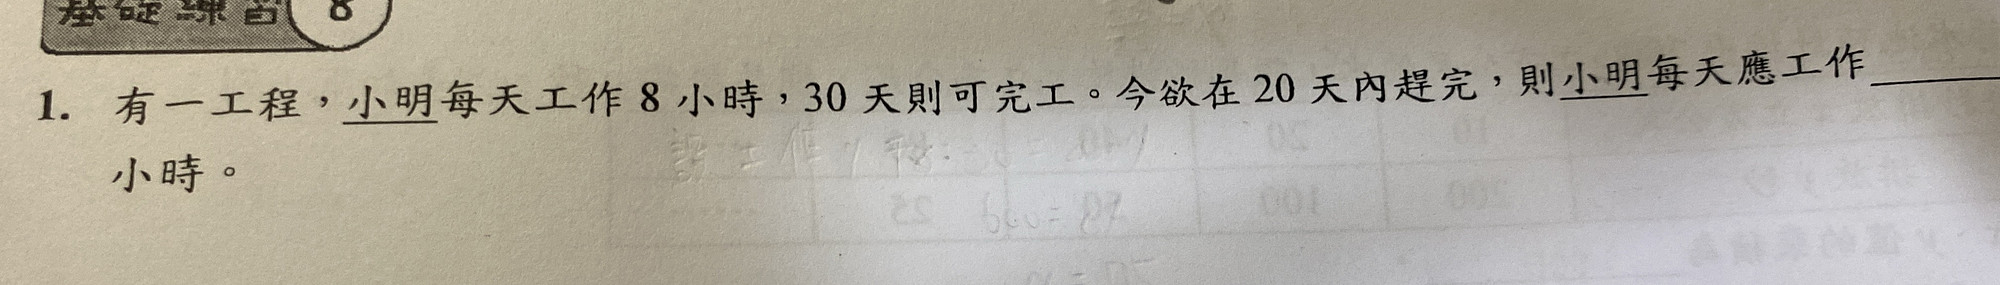 基礎練習 8
1. 有一工程，小明每天工作 8 小時，30 天則可完工。今欲在 20 天內趕完，則小明每天應工作______
小時。